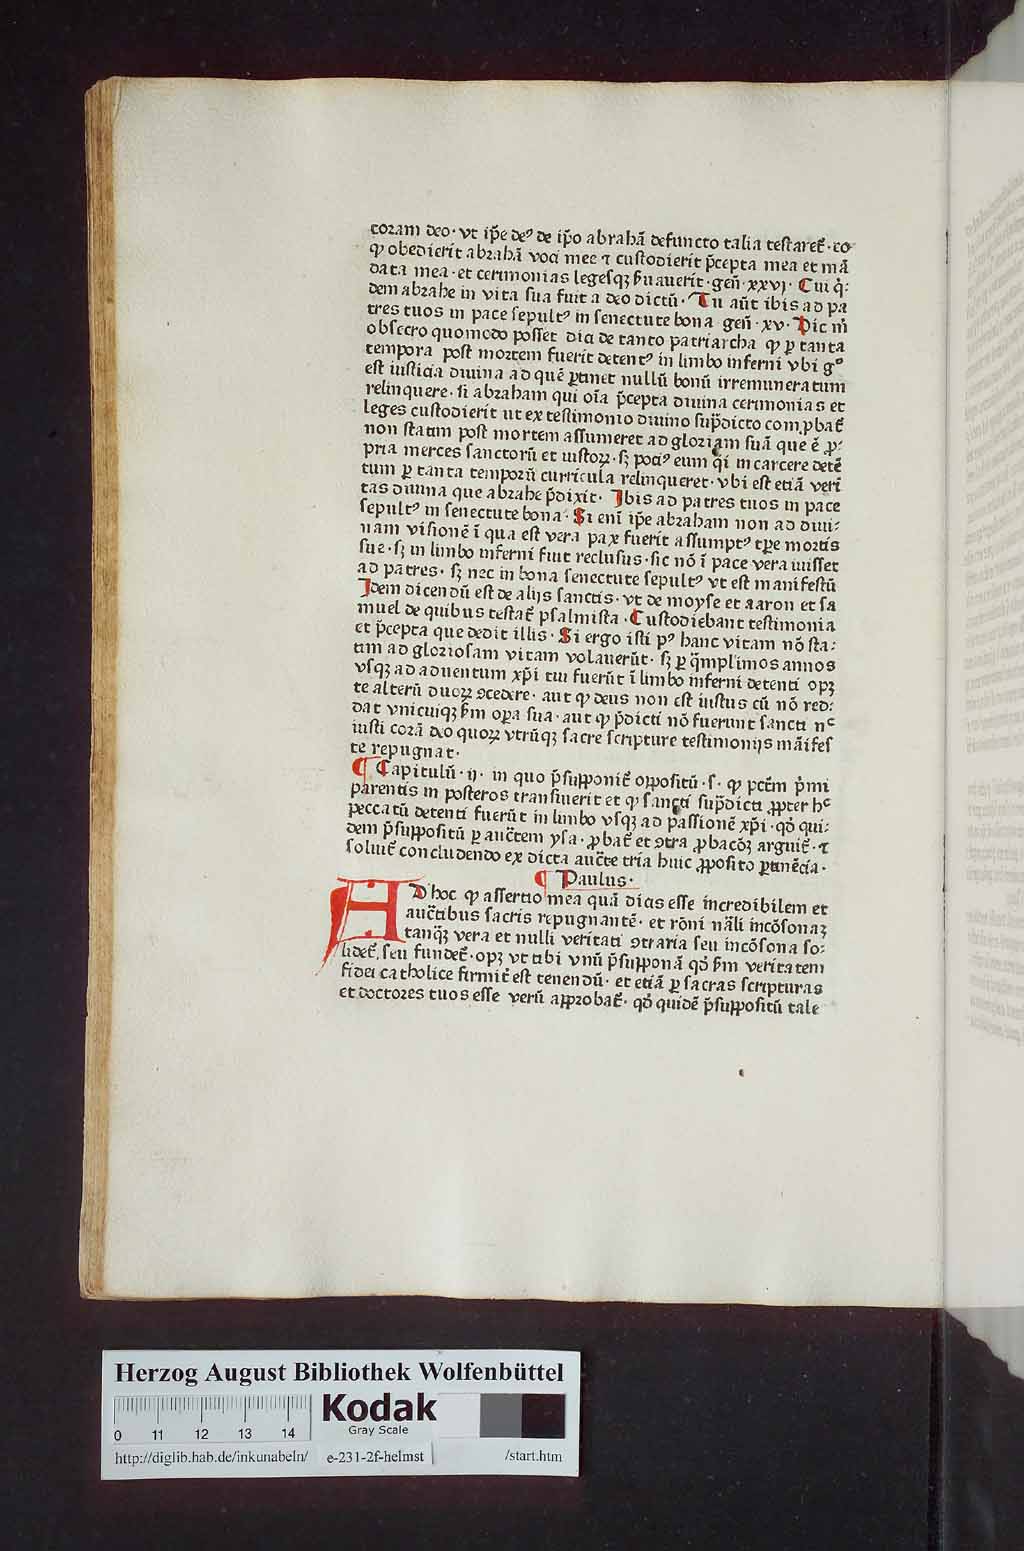 coram deo· vt ip̄e deꝰ de ip̄o abrahā defuncto talia testaret̄· eo
ꝙ obedierit abrahā voci mee ⁊ custodierit p̄cepta mea et mā
data mea· et cerimonias legesqꝫ ẜuauerit· gen̄· xxvj· Cui q̄:
dem abrahe in vita sua fuit a deo dictū· Tu aūt ibis ad pa
tres tuos in pace sepultꝰ in senectute bona gen̄· xv· Dic m̄
obsecro quomodo posset dici de tanto patriarcha ꝙ ꝑ tanta
tempora post mortem fuerit detentꝰ in limbo inferni vbi gͦ
est iusticia diuina ad quē ꝑtinet nullū bonū irremuneratum
relinquere· si abraham qui oīa p̄cepta diuina cerimonias et
leges custodierit ut ex testimonio diuino sup̄dicto comꝓbat̄
non statim post mortem assumeret ad gloriam suā que ē ꝓ:
pria merces sanctorū et iustoꝝ· sꝫ pociꝰ eum q̄i in carcere detē
tum ꝑ tanta temporū curricula relinqueret· vbi est etiā veri
tas diuina que abrahe p̄dixit· Ibis ad patres tuos in pace
sepultꝰ in senectute bona· Si enī ip̄e abraham non ad diui:
nam visionē ī qua est vera pax fuerit assumptꝰ tꝑe mortis
sue· sꝫ in limbo inferni fuit reclusus· sic nō ī pace vera iuisset
ad patres· sꝫ nec in bona senectute sepultꝰ vt est manifestū
Idem dicendū est de alijs sanctis· vt de moyse et aaron et sa
muel de quibus testat̄ psalmista· Custodiebant testimonia
et p̄cepta que dedit illis· Si ergo isti pꝰ hanc vitam nō sta:
tim ad gloriosam vitam volauerūt· sꝫ ꝑ q̄mplimos annos
vsqꝫ ad aduentum xp̄i tui fuerūt ī limbo inferni detenti opꝫ
te alterū duoꝝ ↄcedere· aut ꝙ deus non est iustus cū nō red:
dat vnicuiqꝫ ẜm oꝑa sua· aut ꝙ p̄dicti nō fuerunt sancti nᶜ
iusti corā deo quoꝝ vtrūqꝫ sacre scripture testimonijs māifes
te repugnat·
¶ Capitulū· ij· in quo p̄supponit̄ oppositū· s· ꝙ pctm̄ p̄mi
parentis in posteros transiuerit et ꝙ sancti sup̄dicti ꝓpter hᶜ
peccatū detenti fuerūt in limbo vsqꝫ ad passionē xp̄i· qđ qui:
dem p̄suppositū ꝑ auc̄tem ysa· ꝓbat̄ et ↄtra ꝓbacōꝫ arguit̄· ⁊
soluit̄ concludendo ex dicta auc̄te tria huic ꝓposito ꝑtinēcia·
¶ Paulus·
AD hoc ꝙ assertio mea quā dicis esse incredibilem et
auc̄tibus sacris repugnantē· et rōni nāli incōsonaꝫ
tanq̄ꝫ vera et nulli veritati ↄtraria seu incōsona so:
lidet̄, seu fundet̄· opꝫ vt tibi vnū p̄supponā qđ ẜm veritatem
fidei catholice firmit̄ est tenendū· et etiā ꝑ sacras scripturas
et doctores tuos esse verū approbat̄· qđ quidē p̄suppositū tale
Herzog August Bibliothek Wolfenbüttel
0 11 12 13 14
Kodak
Gray Scale
http://diglib.hab.de/inkunabeln/ e-231-2f-helmst /start.htm